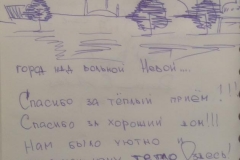 город над вольной Невой...
Спасибо за тёплый приём!!!
Спасибо за хороший дом!!!
Нам было уютно
Здесь!